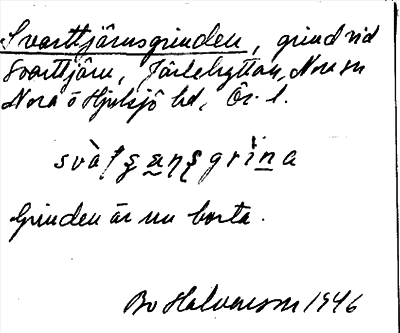 Svarttjärnsgrinden, grind vid
Svarttjärn, Järlehyttan, Nora sn
Nora o Hjulsjö bd, Ör. l.
Grinden är nu borta.
Bo Halvarsson 1946